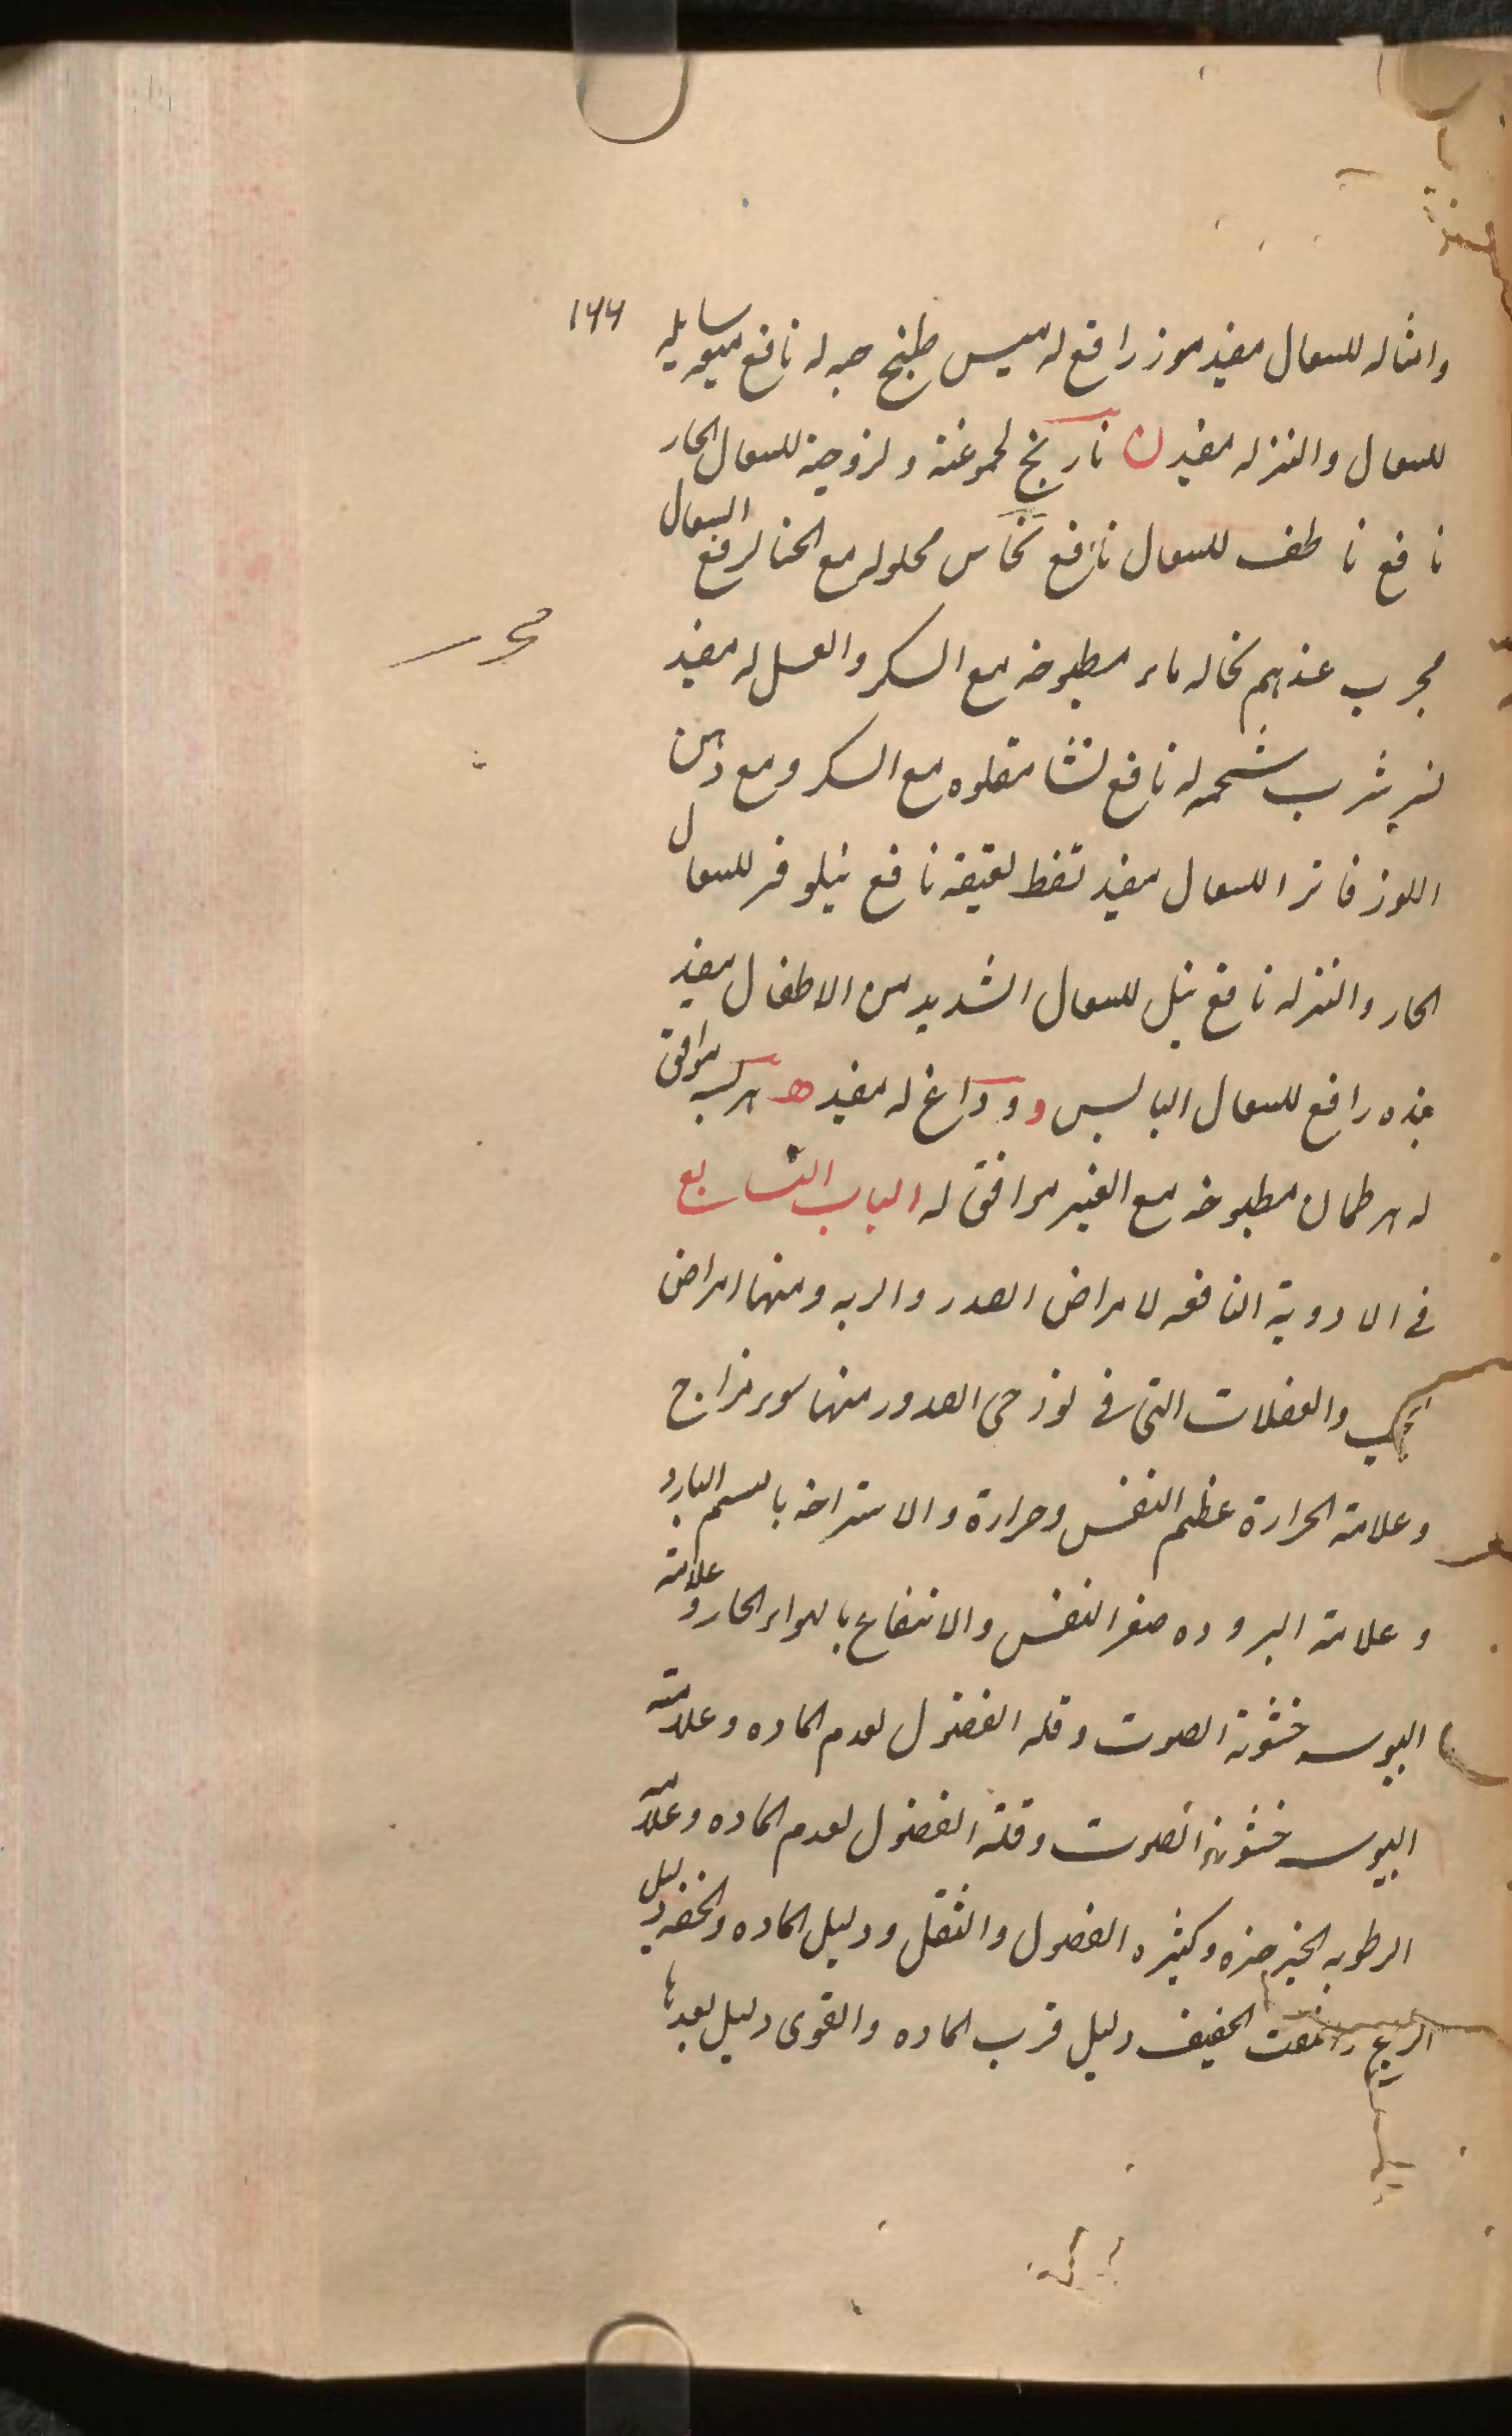 ۱۶۶
وامثاله للسعال مفید موز رافع له میس طبخ حبه له نافع میعه سایله
للسعال والنزله مفید ن نارنج لحموغته ولزوجته للسعال الحار
نافع ناطف للسعال نافع نحاس محلوله مع الخنا لرفع السعال
مجرب عندهم نخاله ماء مطبوخه مع السکر والعسل له مفید
مجرب
شرب شحمه له نافع نشا مقلوه مع السکر ومع دهن
اللوز فاترا للسعال مفید نفط لعیقه نافع نیلوفر للسعال
الحار والنزله نافع نیل للسعال الشدید من الاطفال مفید
هذه رافع للسعال الیابس و وداغ له مفید ه هریسه موافق
له هرطمان مطبوخه مع الغیر موافق له الباب السابع
فی الادویة النافعه لامراض الصدر والریه ومنها امراض
الحجب والعضلات التی فی نوزحی الصدور منها سوء مزاج
وعلامة الحرارة عظم النفس وحرارة والاستراحه بالنسیم البارد
وعلامة البروده صغر النفس والانتفاع بالهواء الحار وعلامته
الیوسه خشونة الصوت وقله الفضول لعدم الماده وعلامته
الیوسه خشونة الصوت وقلة الفضول لعدم الماده وعلامته
الرطوبه الخرخره وکثره الفضول والثقل ودلیل الماده والخفه دلیل
الریح والنفث الخفیف دلیل قرب الماده والقوی دلیل بعدها